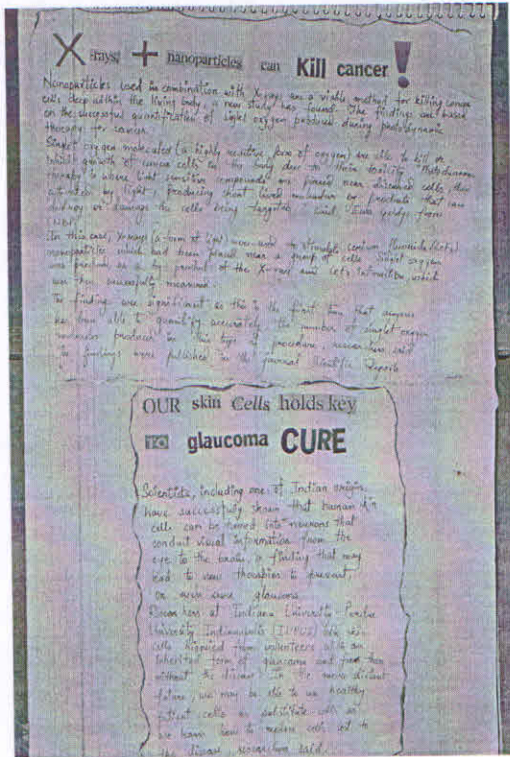 X-rays + nanoparticles can Kill cancer!
Nanoparticles used in combination with X-rays are a viable method for killing cancer
cells deep within the living body, a new study has found. The findings are based
on the successful quantification of singlet oxygen produced during photodynamic
therapy for cancer.
Singlet oxygen molecules (a highly reactive form of oxygen) are able to kill or
inhibit growth of cancer cells in the body due to their toxicity. Photodynamic
therapy is where light sensitive compounds are placed near diseased cells, then
activated by light, producing short lived by products that can
destroy or damage the cells being targeted, said from
In this case, X-rays (a form of light) were used to stimulate cerium fluoride
nanoparticles which had been placed near a group of cells. Singlet oxygen
was produced as a by product of the X-ray and interaction, which
was then successfully measured.
The findings are significant as this is the first time that anyone
has been able to quantify accurately the number of singlet oxygen
produced in this type of procedure, researchers said
The findings were published in the journal Scientific Reports
OUR skin Cells holds key
TO glaucoma CURE
Scientists, including one of Indian origin,
have successfully shown that human skin
cells can be turned into neurons that
conduct visual information from the
eye to the brain, a finding that may
lead to new therapies to prevent,
or even cure glaucoma.
Researchers at Indiana University-Purdue
University Indianapolis (IUPUI) skin
cells biopsied from volunteers with an
inherited form of glaucoma and from those
without the disease. In the more distant
future, we may be able to use healthy
patient cells as substitute cells as
we learn how to replace cells lost to
the disease, researchers said.